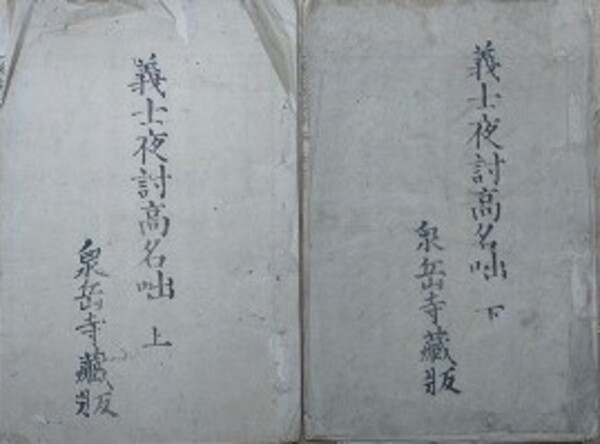 義士夜討高名咄 下
泉岳寺藏版
義士夜討高名咄 上
泉岳寺藏版